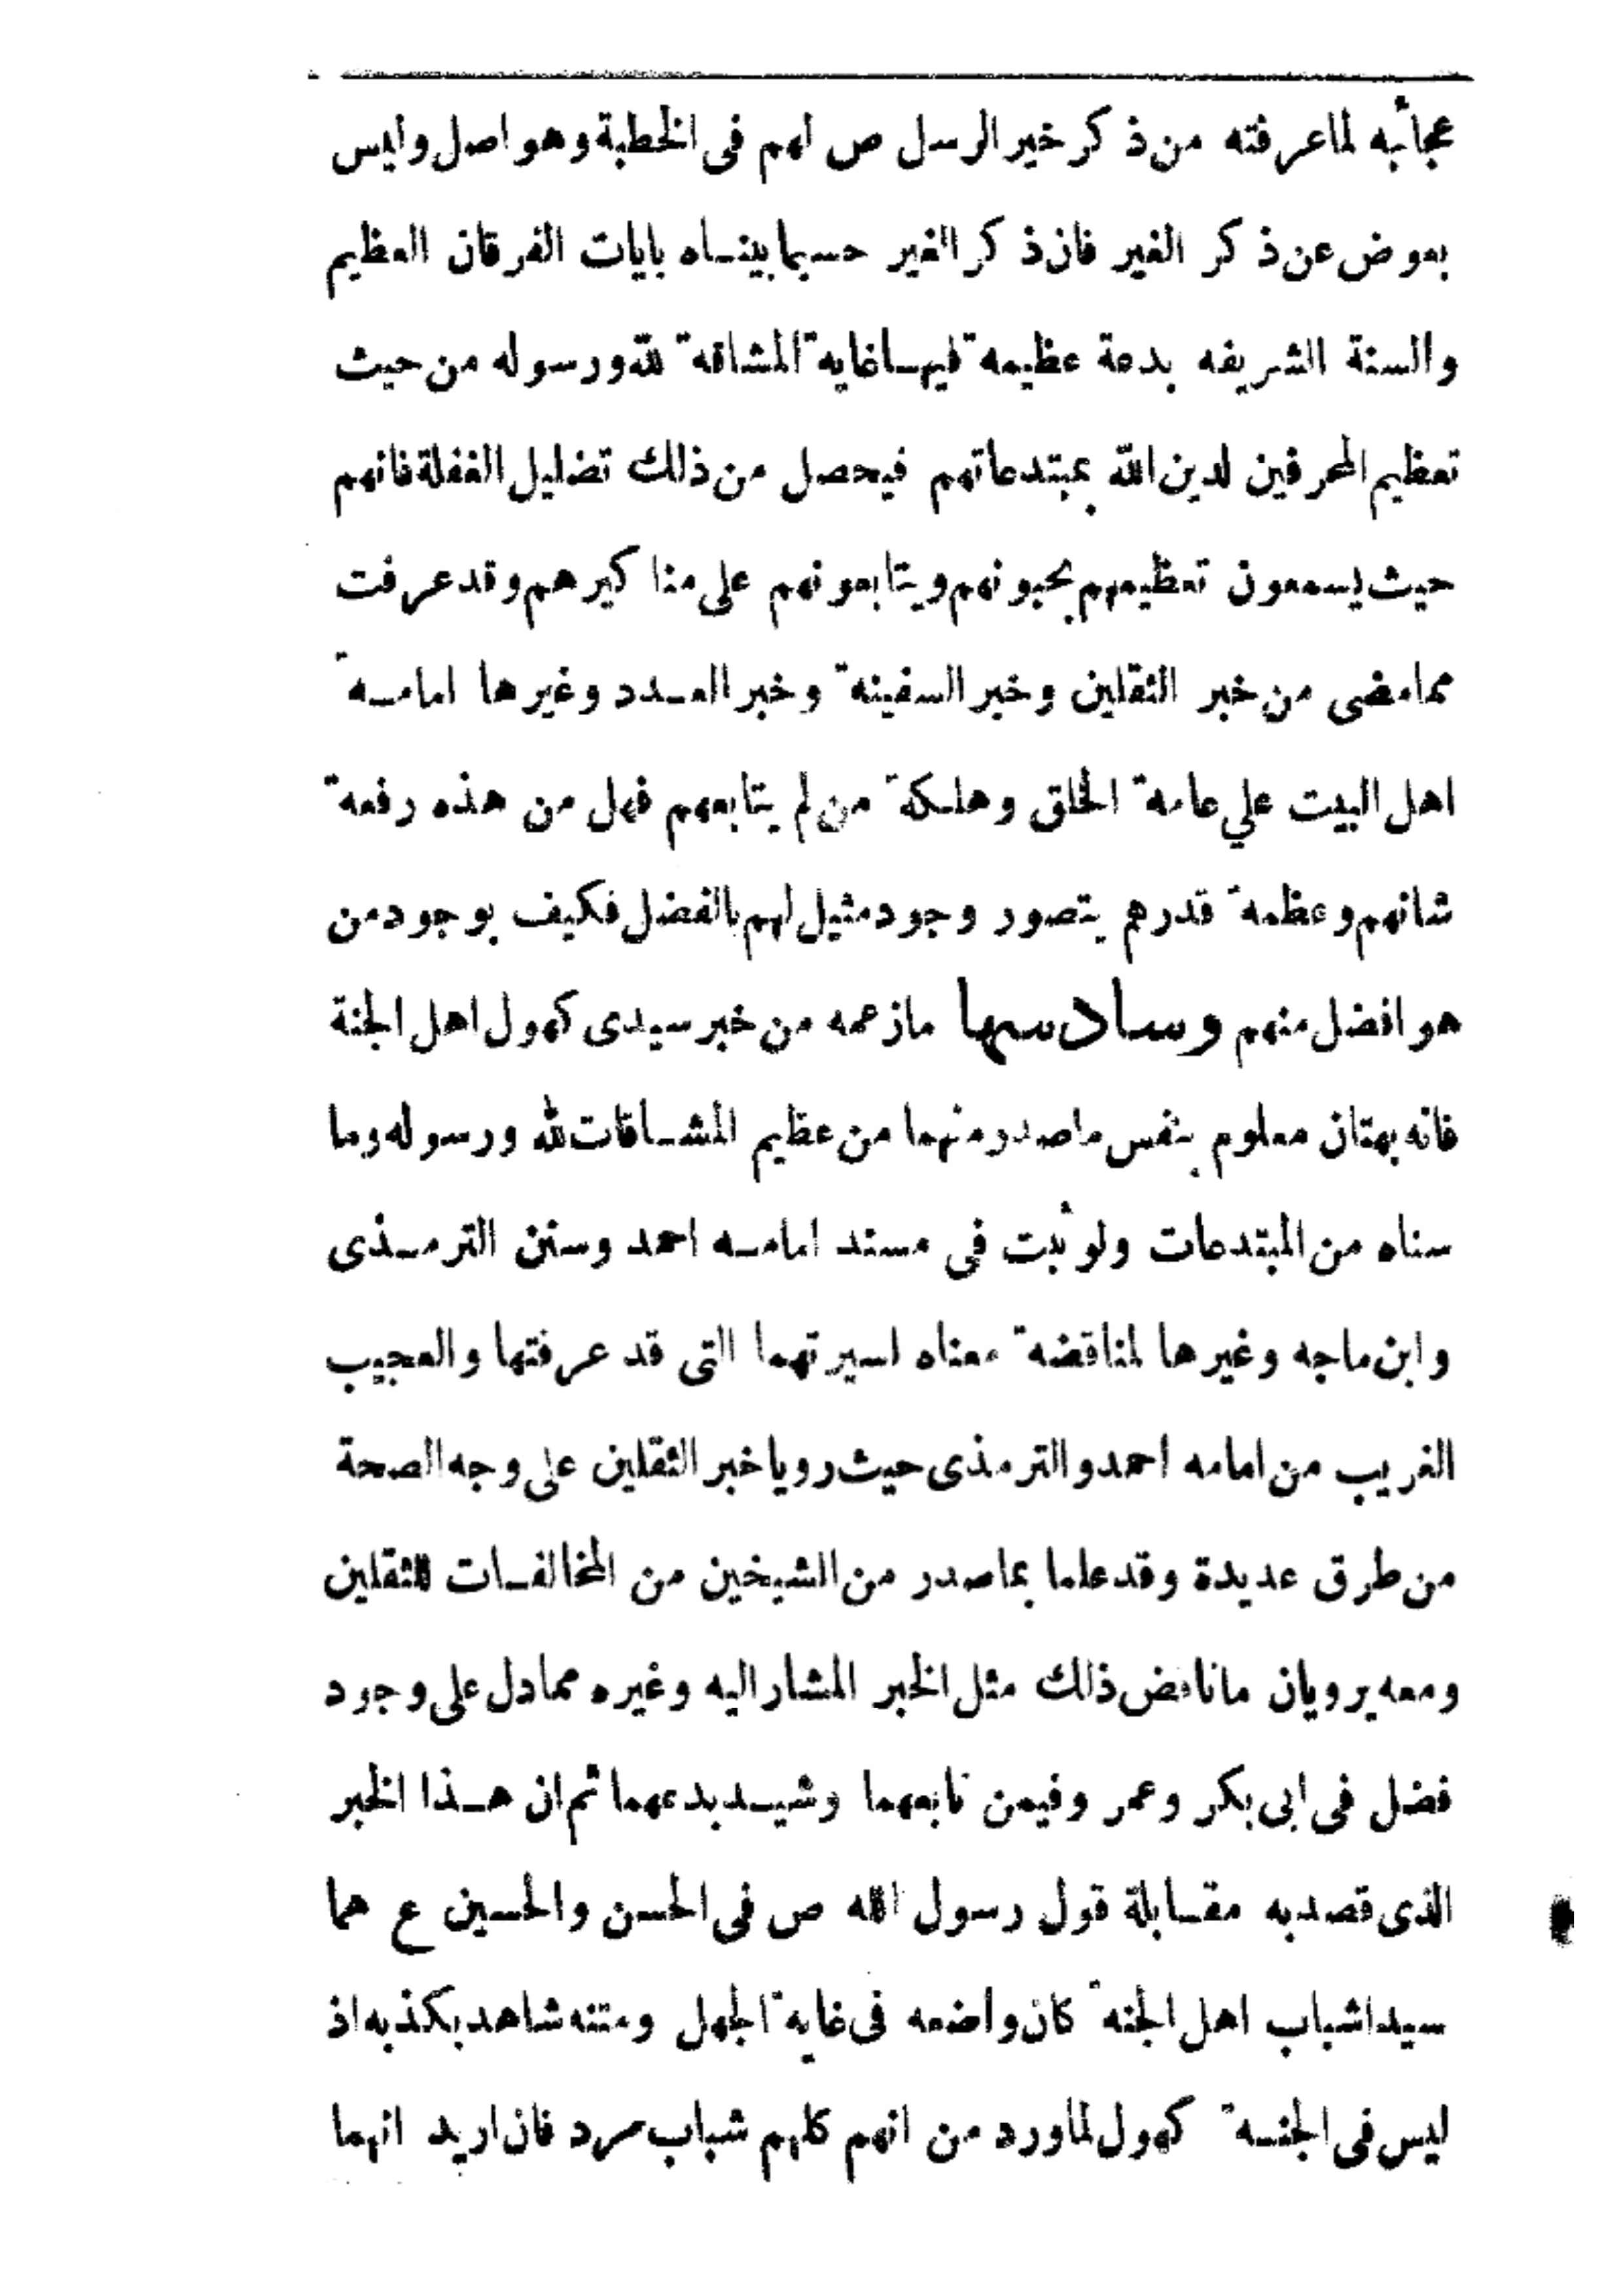 عجائبه لما عرفته من ذكر خير الرسل ص لهم فى الخطبة وهو اصل وليس
بعوض عن ذكر الغير فان ذكر الغير حسبما بينساه بايات الفرقان العظيم
والسنة الشريفه بدعة عظيمة فيها غاية المشاقة لله ورسوله من حيث
تعظيم المحرفين لدين الله بمبتدعاتهم فيحصل من ذلك تضليل الغفلة فانهم
حيث يسمعون تعظيمهم يحبونهم ويتابعونهم على مناكيرهم وقد عرفت
مما مضى من خبر الثقلين وخبر السفينة وخبر العدد وغيرها امامة
اهل البيت علي عامة الخلق وهلكة من لم يتابعهم فهل من هذه رفعة
شانهم وعظمة قدرهم يتصور وجود مثيل لهم بالفضل فكيف بوجود من
هو افضل منهم وسادسها ما زعمه من خبر سيدى كهول اهل الجنة
فانه بهتان معلوم بنفس ما صدر منهما من عظيم المشاقات لله ورسوله وما
سناه من المبتدعات ولو ثبت فى مسند امامه احمد وسنن الترمذى
وابن ماجه وغيرها لمناقضة معناه لسيرتهما التى قد عرفتها والعجيب
الغريب من امامه احمد والترمذى حيث رويا خبر الثقلين على وجه الصحة
من طرق عديدة وقد علما بما صدر من الشيخين من المخالفات للثقلين
ومعه يرويان ما ناقض ذلك مثل الخبر المشار اليه وغيره مما دل على وجود
فضل فى ابى بكر وعمر وفيمن تابعهما وشيد بدعهما ثم ان هذا الخبر
الذى قصد به مقابلة قول رسول الله ص فى الحسن والحسين ع هما
سيدا شباب اهل الجنة كان واضعه فى غاية الجهل ومتنه شاهد بكذبه اذ
ليس فى الجنة كهول لما ورد من انهم كلهم شباب مرد فان اريد انهما